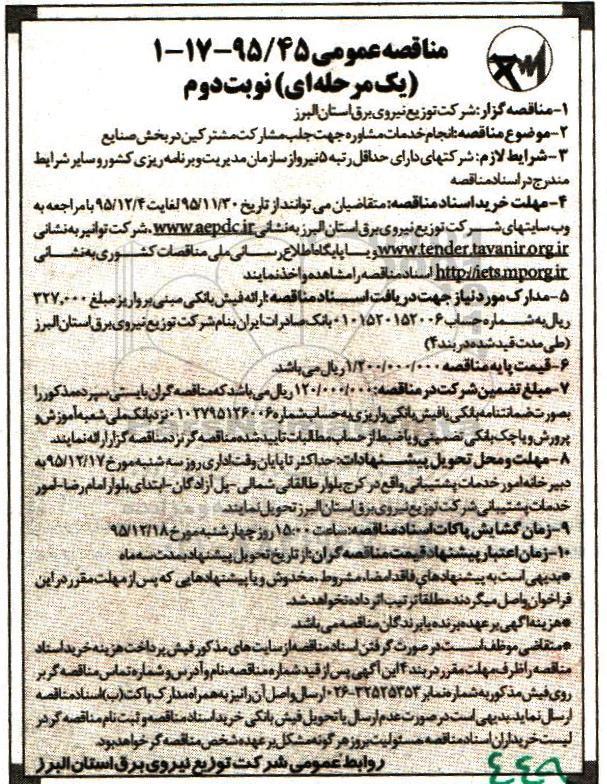 مناقصه عمومی ۹۵/۴۵-۱۷-۱
(یک مرحله‌ای) نوبت دوم
۱-مناقصه گزار: شرکت توزیع نیروی برق استان البرز
۲-موضوع مناقصه: انجام خدمات مشاوره جهت جلب مشارکت مشترکین در بخش صنایع
۳-شرایط لازم: شرکتهای دارای حداقل رتبه ۵ نیرو از سازمان مدیریت و برنامه ریزی کشور و سایر شرایط
مندرج در اسناد مناقصه
۴-مهلت خرید اسناد مناقصه: متقاضیان می توانند از تاریخ ۹۵/۱۱/۳۰ لغایت ۹۵/۱۲/۴ با مراجعه به
وب سایتهای شرکت توزیع نیروی برق استان البرز به نشانی www.aepdc.ir، شرکت توانیر به نشانی
www.tender.tavanir.org.ir و یا پایگاه اطلاع رسانی ملی مناقصات کشوری به نشانی
http://iets.mporg.ir اسناد مناقصه را مشاهده و اخذ نمایند
۵-مدارک مورد نیاز جهت دریافت اسناد مناقصه: ارائه فیش بانکی مبنی بر واریز مبلغ ۳۲۷,۰۰۰
ریال به شماره حساب ۰۱۰۱۵۲۰۱۵۲۰۰۶ بانک صادرات ایران بنام شرکت توزیع نیروی برق استان البرز
(طی مدت قید شده در بند ۴)
۶-قیمت پایه مناقصه ۱/۲۰۰/۰۰۰/۰۰۰ ریال می باشد.
۷-مبلغ تضمین شرکت در مناقصه: ۱۲۰/۰۰۰/۰۰۰ ریال می باشد که مناقصه گران بایستی سپرده مذکور را
بصورت ضمانتنامه بانکی یا فیش بانکی واریزی به حساب شماره ۰۱۰۲۷۹۵۱۲۶۰۰۶ نزد بانک ملی شعبه آموزش و
پرورش و یا چک بانکی تضمینی و یا ضبط از حساب مطالبات تایید شده مناقصه گر نزد مناقصه گزار ارائه نمایند.
۸-مهلت و محل تحویل پیشنهادات: حداکثر تا پایان وقت اداری روز سه شنبه مورخ ۹۵/۱۲/۱۷ به
دبیرخانه امور خدمات پشتیبانی واقع در کرج بلوار طالقانی شمالی-پل آزادگان-ابتدای بلوار امام رضا-امور
خدمات پشتیبانی شرکت توزیع نیروی برق استان البرز تحویل نمایند.
۹-زمان گشایش پاکات اسناد مناقصه: ساعت ۱۵:۰۰ روز چهارشنبه مورخ ۹۵/۱۲/۱۸
۱۰-زمان اعتبار پیشنهاد قیمت مناقصه گران: از تاریخ تحویل پیشنهاد بمدت سه ماه
*بدیهی است به پیشنهادهای فاقد امضاء، مشروط، مخدوش و یا پیشنهادهایی که پس از مهلت مقرر در این
فراخوان واصل میگردند مطلقا ترتیب اثر داده نخواهد شد.
*هزینه آگهی بر عهده برنده یا برندگان مناقصه می باشد.
*متقاضی موظف است در صورت گرفتن اسناد مناقصه از سایت های مذکور فیش پرداخت هزینه خرید اسناد
مناقصه را ظرف مهلت مقرر در بند ۴ این آگهی پس از قید شماره مناقصه، نام و آدرس و شماره تماس مناقصه گر بر
روی فیش مذکور به شماره نمابر ۳۲۵۲۵۳۵۳-۰۲۶ ارسال و اصل آن را نیز به همراه مدارک پاکت (ب) اسناد مناقصه
ارسال نماید. بدیهی است در صورت عدم ارسال یا تحویل فیش بانکی خرید اسناد مناقصه و ثبت نام مناقصه گر در
لیست خریداران اسناد مناقصه مسئولیت بروز هرگونه مشکل بر عهده شخص مناقصه گر خواهد بود.
روابط عمومی شرکت توزیع نیروی برق استان البرز